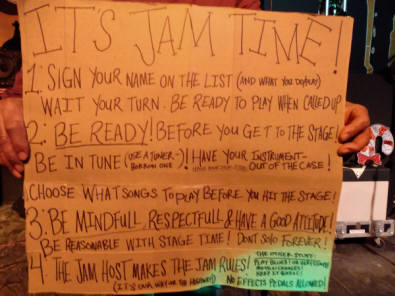 IT'S JAM TIME!
1. SIGN YOUR NAME ON THE LIST (AND WHAT YOU DO/PLAY)
WAIT YOUR TURN. BE READY TO PLAY WHEN CALLED UP
2. BE READY! BEFORE YOU GET TO THE STAGE!
BE IN TUNE (USE A TUNER-BORROW ONE)! HAVE YOUR INSTRUMENT-OUT OF THE CASE!
CHOOSE WHAT SONGS TO PLAY BEFORE YOU HIT THE STAGE!
3. BE MINDFULL, RESPECTFULL & HAVE A GOOD ATTITUDE!
BE REASONABLE WITH STAGE TIME! DON'T SOLO FOREVER!
4. THE JAM HOST MAKES THE JAM RULES!
(IT'S OUR WAY OR THE HIGHWAY)
THE OTHER STUFF:
NO EFFECTS PEDALS ALLOWED!